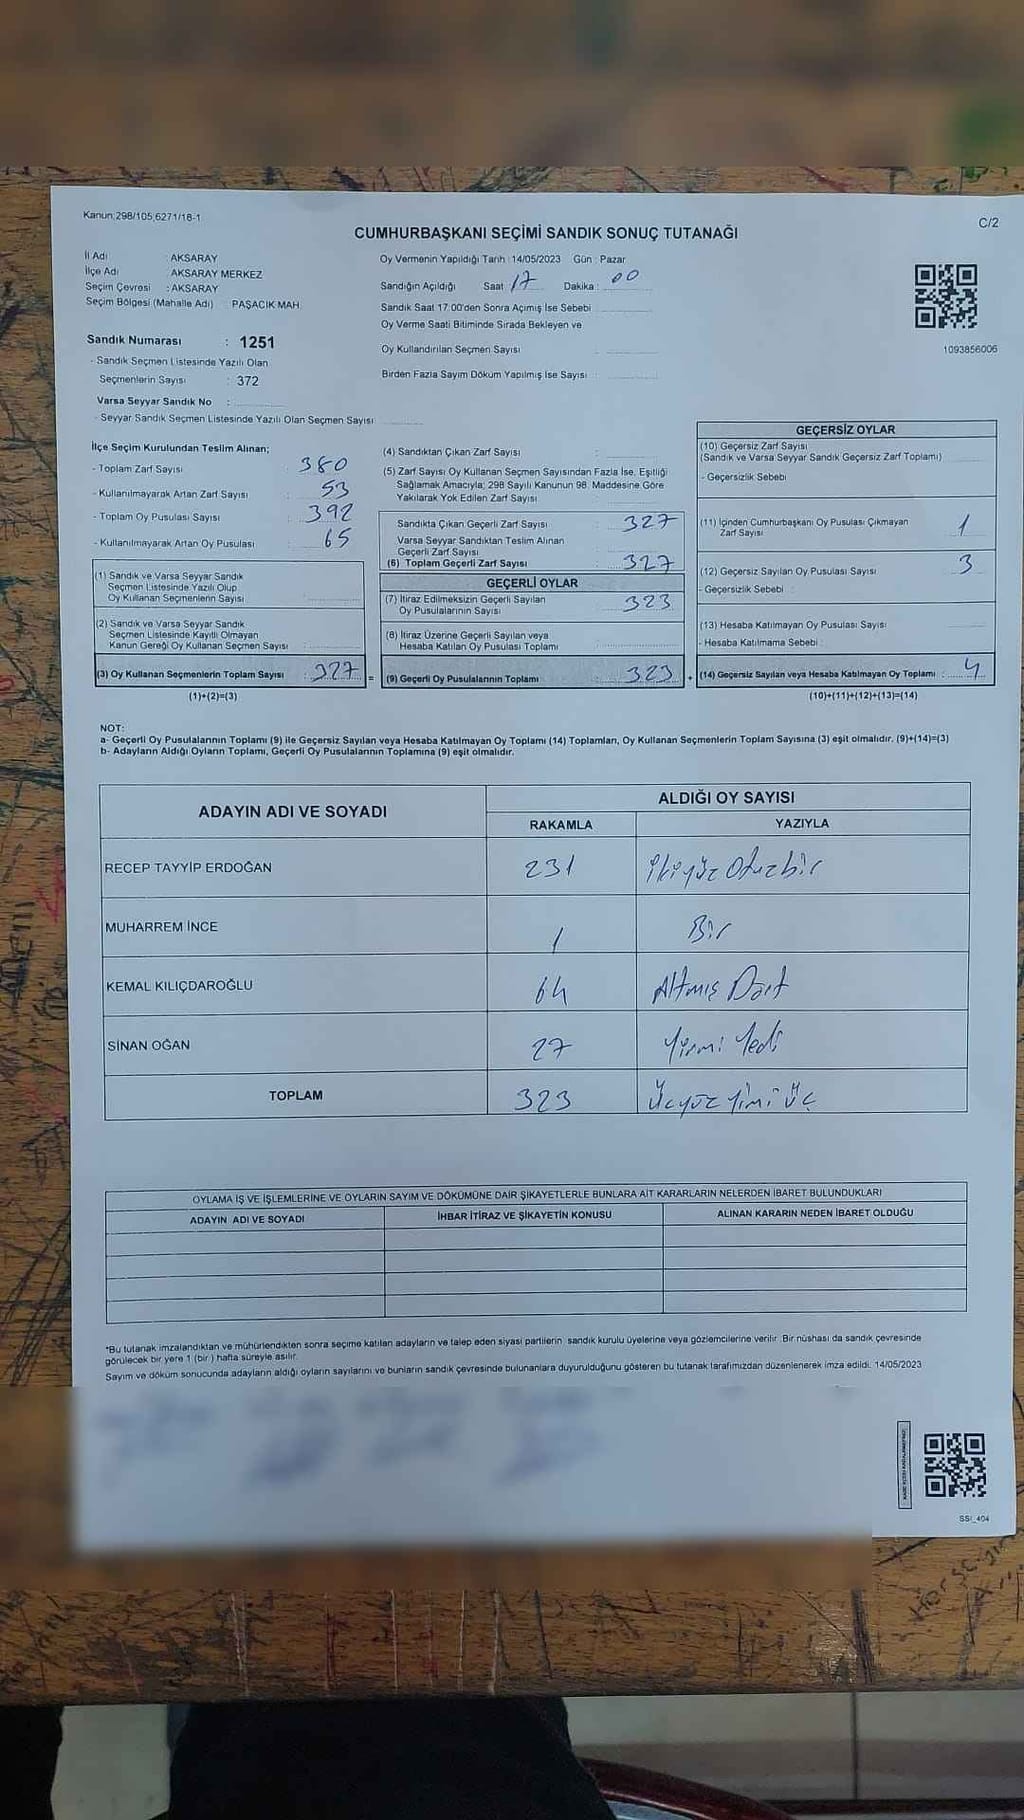 Kanun:298/105,6271/18-1
C/2
CUMHURBAŞKANI SEÇİMİ SANDIK SONUÇ TUTANAĞI
İl Adı : AKSARAY
İlçe Adı : AKSARAY MERKEZ
Seçim Çevresi : AKSARAY
Seçim Bölgesi (Mahalle Adı) : PAŞACIK MAH.
Oy Vermenin Yapıldığı Tarih :14/05/2023 Gün : Pazar
Sandığın Açıldığı Saat : 17 Dakika : 00
Sandık Saat 17.00'den Sonra Açımış İse Sebebi :
Oy Verme Saati Bitiminde Sırada Bekleyen ve
Oy Kullandırılan Seçmen Sayısı :
Birden Fazla Sayım Döküm Yapılmış İse Sayısı :
1093856006
Sandık Numarası : 1251
- Sandık Seçmen Listesinde Yazılı Olan
Seçmenlerin Sayısı : 372
Varsa Seyyar Sandık No :
- Seyyar Sandık Seçmen Listesinde Yazılı Olan Seçmen Sayısı :
İlçe Seçim Kurulundan Teslim Alınan;
- Toplam Zarf Sayısı : 380
- Kullanılmayarak Artan Zarf Sayısı : 53
- Toplam Oy Pusulası Sayısı : 392
- Kullanılmayarak Artan Oy Pusulası : 65
(1) Sandık ve Varsa Seyyar Sandık
Seçmen Listesinde Yazılı Olup
Oy Kullanan Seçmenlerin Sayısı :
(2) Sandık ve Varsa Seyyar Sandık
Seçmen Listesinde Kayıtlı Olmayan
Kanun Gereği Oy Kullanan Seçmen Sayısı :
(3) Oy Kullanan Seçmenlerin Toplam Sayısı : 327
(1)+(2)=(3)
(4) Sandıktan Çıkan Zarf Sayısı :
(5) Zarf Sayısı Oy Kullanan Seçmen Sayısından Fazla İse, Eşitliği
Sağlamak Amacıyla; 298 Sayılı Kanunun 98. Maddesine Göre
Yakılarak Yok Edilen Zarf Sayısı :
Sandıkta Çıkan Geçerli Zarf Sayısı : 327
Varsa Seyyar Sandıktan Teslim Alınan
Geçerli Zarf Sayısı :
(6) Toplam Geçerli Zarf Sayısı : 327
GEÇERLİ OYLAR
(7) İtiraz Edilmeksizin Geçerli Sayılan
Oy Pusulalarının Sayısı : 323
(8) İtiraz Üzerine Geçerli Sayılan veya
Hesaba Katılan Oy Pusulası Toplamı :
= (9) Geçerli Oy Pusulalarının Toplamı : 323 +
GEÇERSİZ OYLAR
(10) Geçersiz Zarf Sayısı
(Sandık ve Varsa Seyyar Sandık Geçersiz Zarf Toplamı) :
- Geçersizlik Sebebi :
(11) İçinden Cumhurbaşkanı Oy Pusulası Çıkmayan
Zarf Sayısı : 1
(12) Geçersiz Sayılan Oy Pusulası Sayısı : 3
- Geçersizlik Sebebi :
(13) Hesaba Katılmayan Oy Pusulası Sayısı :
- Hesaba Katılmama Sebebi :
(14) Geçersiz Sayılan veya Hesaba Katılmayan Oy Toplamı : 4
(10)+(11)+(12)+(13)=(14)
NOT:
a- Geçerli Oy Pusulalarının Toplamı (9) ile Geçersiz Sayılan veya Hesaba Katılmayan Oy Toplamı (14) Toplamları, Oy Kullanan Seçmenlerin Toplam Sayısına (3) eşit olmalıdır. (9)+(14)=(3)
b- Adayların Aldığı Oyların Toplamı, Geçerli Oy Pusulalarının Toplamına (9) eşit olmalıdır.
ADAYIN ADI VE SOYADI
ALDIĞI OY SAYISI
RAKAMLA YAZIYLA
RECEP TAYYİP ERDOĞAN 231 ikiyüz Otuzbir
MUHARREM İNCE 1 Bir
KEMAL KILIÇDAROĞLU 64 Altmış Dört
SİNAN OĞAN 27 Yirmi Yedi
TOPLAM 323 Üçyüz Yirmi Üç
OYLAMA İŞ VE İŞLEMLERİNE VE OYLARIN SAYIM VE DÖKÜMÜNE DAİR ŞİKAYETLERLE BUNLARA AİT KARARLARIN NELERDEN İBARET BULUNDUKLARI
ADAYIN ADI VE SOYADI İHBAR İTİRAZ VE ŞİKAYETİN KONUSU ALINAN KARARIN NEDEN İBARET OLDUĞU
*Bu tutanak imzalandıktan ve mühürlendikten sonra seçime katılan adayların ve talep eden siyasi partilerin, sandık kurulu üyelerine veya gözlemcilerine verilir. Bir nüshası da sandık çevresinde
görülecek bir yere 1 (bir ) hafta süreyle asılır.
Sayım ve döküm sonucunda adayların aldığı oyların sayılarını ve bunların sandık çevresinde bulunanlara duyurulduğunu gösteren bu tutanak tarafımızdan düzenlenerek imza edildi. 14/05/2023
SSI_404